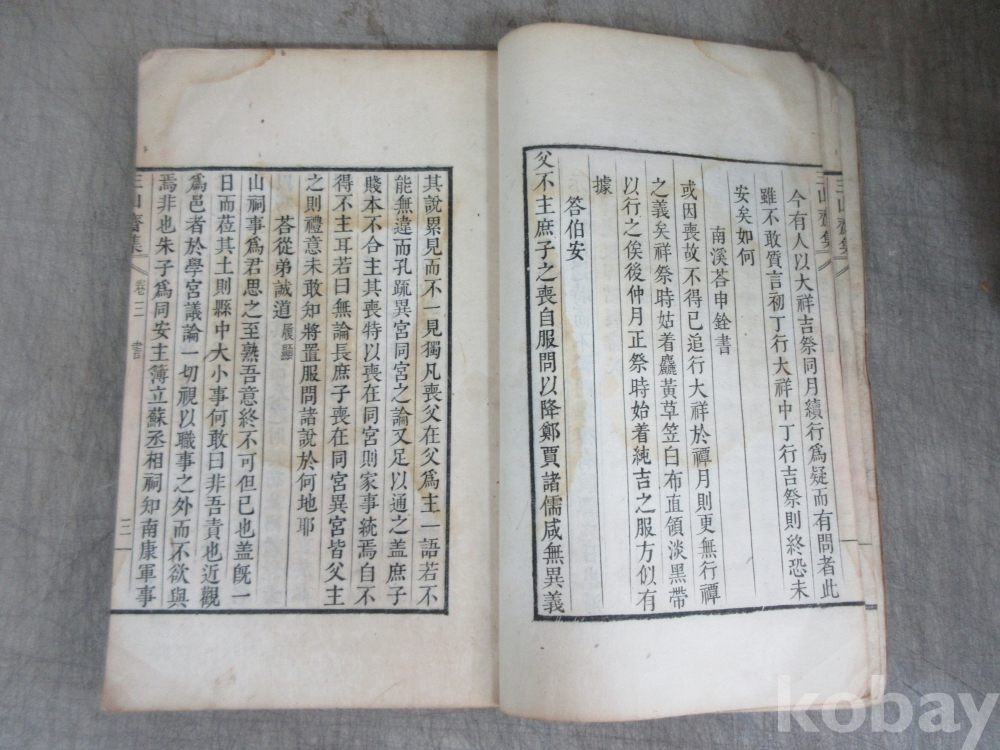 三山齋集
今有人以大祥吉祭同月續行爲疑而有問者此
雖不敢質言初丁行大祥中丁行吉祭則終恐未
安矣如何
南溪荅申銓書
或因喪故不得已追行大祥於禫月則更無行禫
之義矣祥祭時姑着麤黃草笠白布直領淡黑帶
以行之俟後仲月正祭時始着純吉之服方似有
據
答伯安
父不主庶子之喪自服問以降鄭賈諸儒咸無異義
其說累見而不一見獨凡喪父在父爲主一語若不
能無違而孔䟽異宮同宮之論又足以通之盖庶子
賤本不合主其喪特以喪在同宮則家事統焉自不
得不主耳若曰無論長庶子喪在同宮異宮皆父主
之則禮意未敢知將置服問諸說於何地耶
荅從弟誠道履顯
山祠事爲君思之至熟吾意終不可但已也盖旣一
日而莅其土則縣中大小事何敢曰非吾責也近觀
爲邑者於學宮議論一切視以職事之外而不欲與
焉非也朱子爲同安主薄立蘇丞相祠知南康軍事
三山齋集 卷三 書 三
kobay